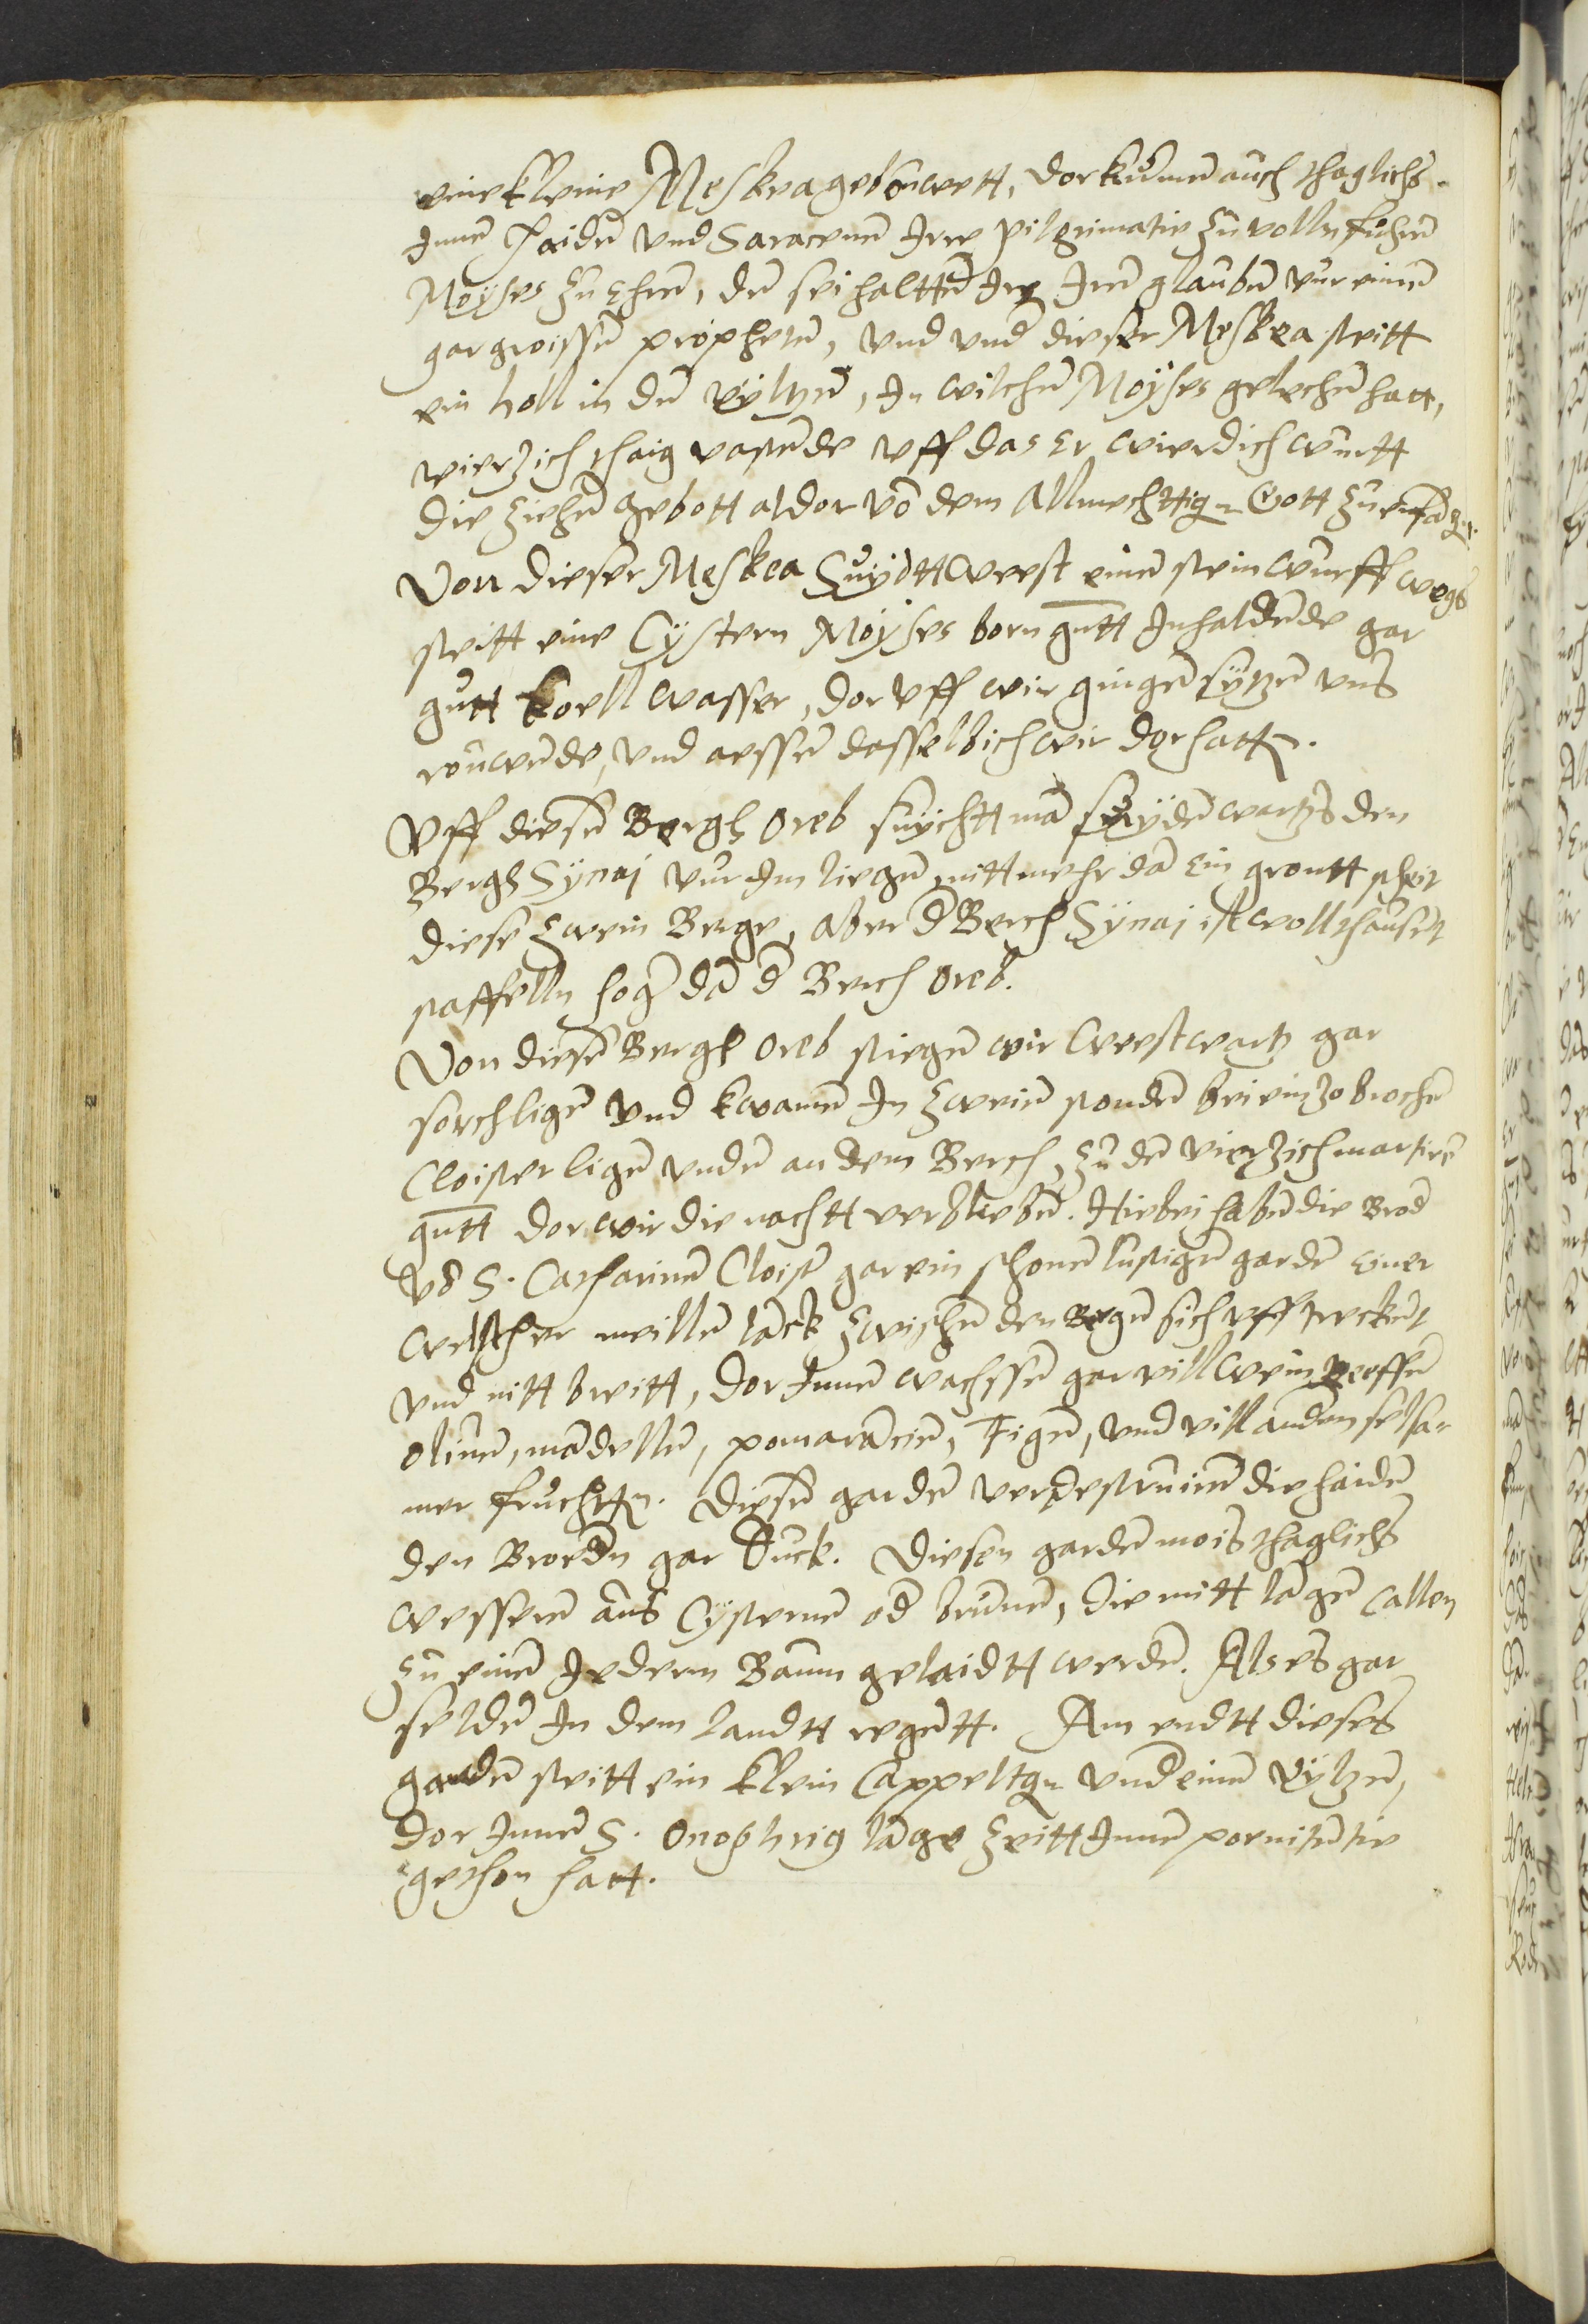 eine kleine Meskea gebouwett, dor kumen auch thaglichs
Innen Haiden und Saracenen Irre pilgrimatie zu vollnfuhren
Moyses zu Ehren, den sei haltten Irer Iren glauben vur einen
gar groissen propheten, und under dieser Meskea steitt
ein holl in den vyltzen, In wilchen Moyses gelechen hatt,
vierzich thaig vastende uff das Er wierdich wurtt
die Ziehen Gebott aldor vo dem Allmechttigen Gott zu enfangen.
Von dieser Meskea Suydttwest einen steinwurff wegs
steitt eine Cystern Moyses born gntt Inhaldende gar
gutt koell wasser, dor uff wir gingen sytzen uns
rouwende, und aessen dasselbich wir dor hatten.
Uff diesen Bergh Oreb suychtt man suydenwartzs den
Bergh Synai vur Im liegen, nitt mehr dan Ein grontt scheit
diese zwein Berge, aber d Berch Synai ist woll thausent
staffelln hoger dan d Berch Oreb.
Von diesen Bergh Oreb stiegen wir Westwartz gar
sorchligen und kwamen In zweien stonden bei ein zobrochen
Cloister ligen unden an dem Berch, zu den vierzich martiren
gntt dor wir die nachtt verblieben. Hiebei haben die Broder
vo S. Catharinen Cloister gar ein schonen lustigen garden einer
welscher meillen lanck zwischen den Bergen sich uffstreckent
und nitt breitt, dor Innen wachssen gar vill wein
oliven, mandellen, pomarancien, Figen, und vill anderen seltsa-
mer fruchtten. Diesen garden verdestruiren die haiden
den Broedern gar duck. Diesen garden mois thaglichs
wesseren aus Cysternen od brunnen, die mitt langen Callen
zu einen Iederen Baum gelaidtt werden. Als es gar
selden In dem landtt regentt. Am endtt dieses
garden steitt ein klein Cappeltgen under einen vyltzen,
dor Innen S. Onophrig lange zeitt Innen poenitentie
gethon hatt.